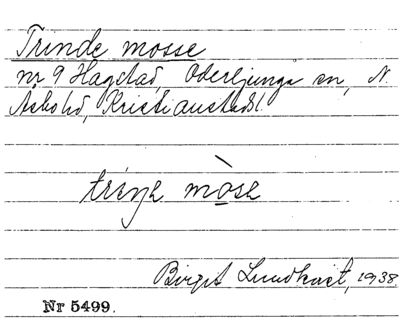 Trinde mosse
nr 9 Hagstad, Oderljunga sn, N.
Åsbo hd, Kristianstads l.
trinɂe mòse
Birgit Lundkvist, 1938.
Nr 5499.